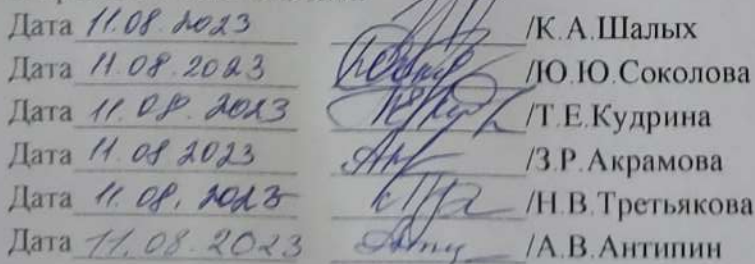 Дата 11.08.2023 /К.А.Шалых
Дата 11.08.2023 /Ю.Ю.Соколова
Дата 11.08.2023 /Т.Е.Кудрина
Дата 11.08 2023 /З.Р.Акрамова
Дата 11.08.2023 /Н.В.Третьякова
Дата 11.08.2023 /А.В.Антипин